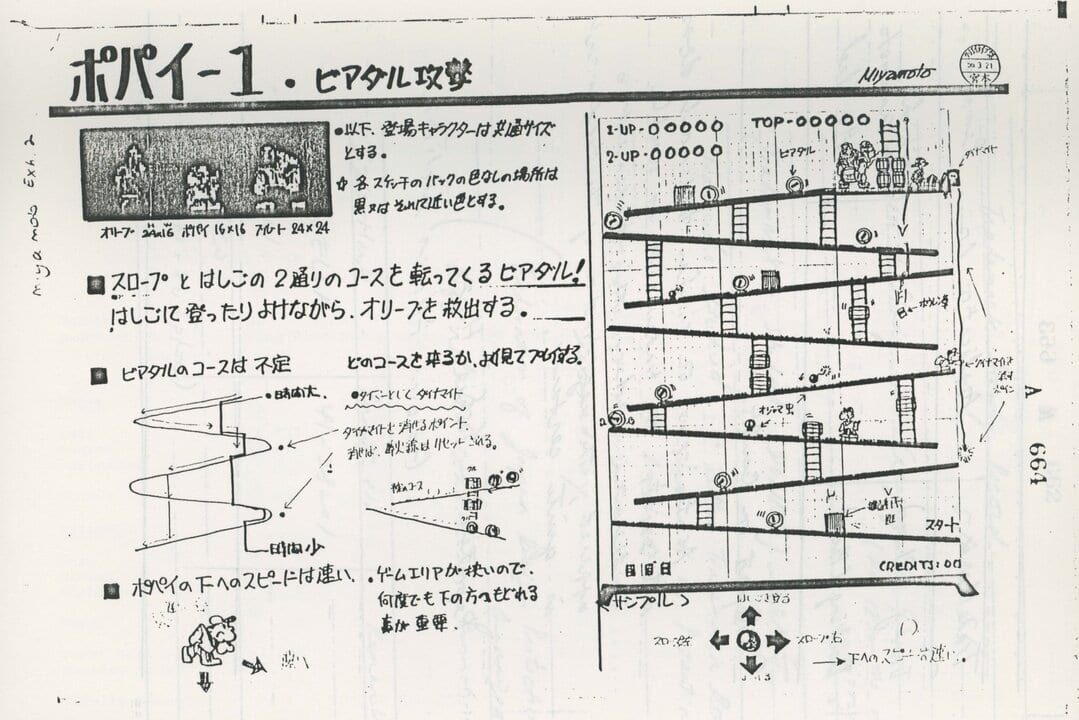 ポパイ-1・ビアダル攻撃
Miyamoto
宮本
Miyamoto Exh. 2
オリーブ 24×16 ポパイ 16×16 ブルート 24×24
●以下、登場キャラクターは共通サイズ
とする。
☆ 各スケッチのバックの色なしの場所は
黒又はそれに近い色とする。
■ スロープとはしごの2通りのコースを転ってくるビアダル!
はしごにて登ったりよけながら、オリーブを救出する。
■ ビアダルのコースは不定 どのコースを来るか、よく見てプレイする。
●時間大
●タイマーとして ダイナマイト
ダイナマイトを消せるポイント
消せば、導火線はリセットされる。
時間少
■ ポパイの下へのスピードは速い、
●ゲームエリアが狭いので、
何度でも下の方へもどれる
事が重要.
1-UP-00000
TOP-00000
2-UP-00000
ビアダル
ダイナマイト
ホウレン草
オジャマ虫
スタート
CREDIT:00
サンプル
スロープ左
スロープ右
A
664